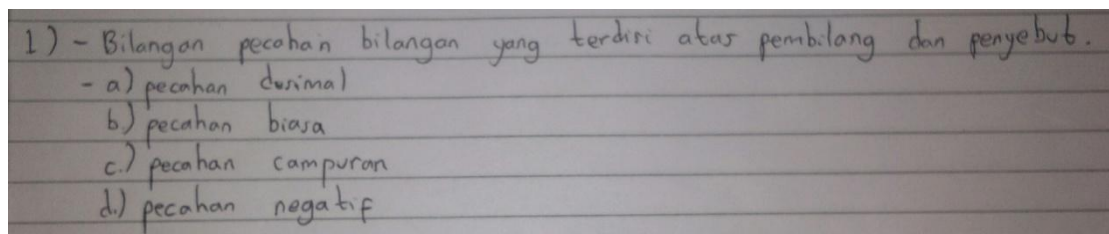 1) - Bilangan pecahan bilangan yang terdiri atas pembilang dan penyebut.
- a) pecahan desimal
b) pecahan biasa
c.) pecahan campuran
d.) pecahan negatif